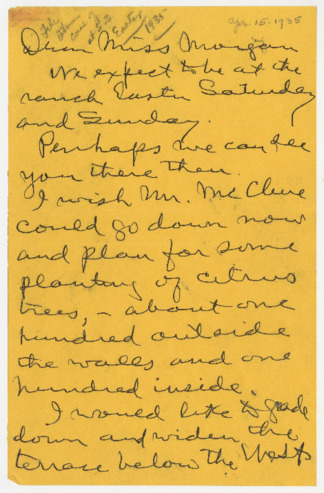 apr. 15-1935
Easter
1935
Dear Miss Morgan
We expect to be at the
ranch Easter Saturday
and Sunday.
Perhaps we can see
you there then.
I wish Mr. McClure
could go down now
and plan for some
planting of citrus
trees, – about one
hundred outside
the walls and one
hundred inside.
I would like to grade
down and widen the
terrace below the West